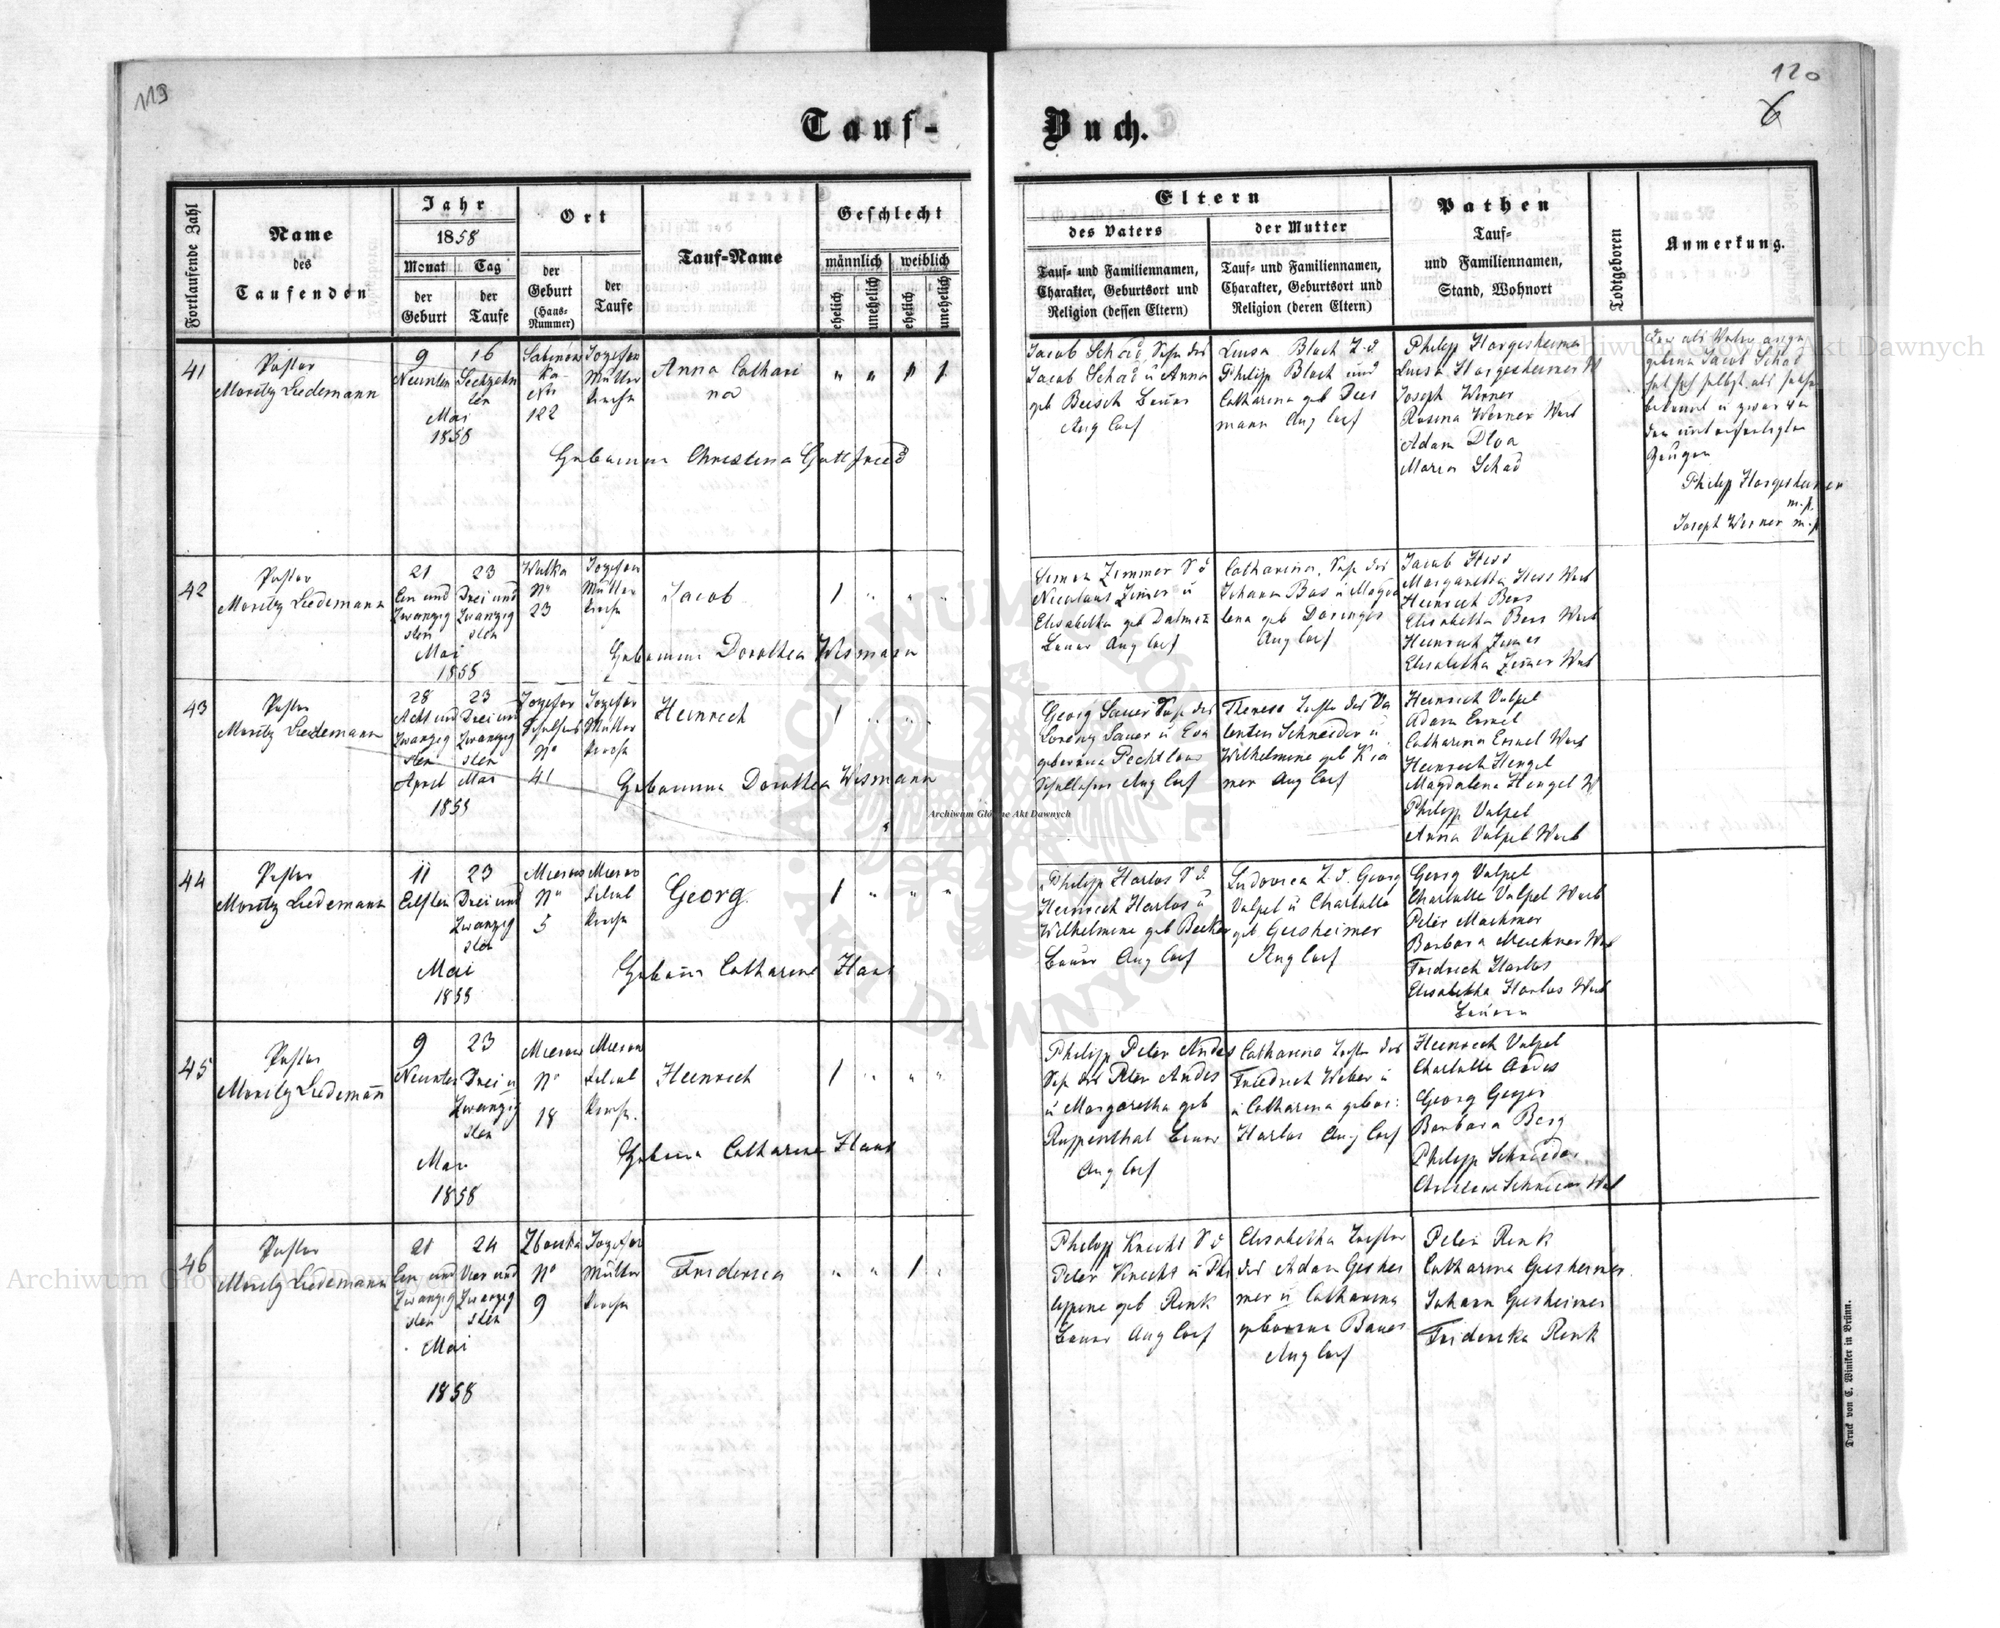 119
120
6
Tauf-
Buch.
Fortlaufende Zahl
Name
des
Taufenden
Jahr
1858
Monat
Tag
der
Geburt
der
Taufe
Ort
der
Geburt
(Haus-
Nummer)
der
Taufe
Tauf-Name
Geschlecht
männlich
weiblich
ehelich
unehelich
ehelich
unehelich
Eltern
des Vaters
Tauf- und Familiennamen,
Charakter, Geburtsort und
Religion (dessen Eltern)
der Mutter
Tauf- und Familiennamen,
Charakter, Geburtsort und
Religion (deren Eltern)
Pathen
Tauf-
und Familiennamen,
Stand, Wohnort
Todtgeboren
Anmerkung.
41
Pastor
Moritz Liedemann
9
Neunten
16
Sechzehn
ten
Mai
1858
122
Jozefow
Mutter
Kirche
Anna Cathari
na
Hebamme Christina Gottfried
Jacob Schad, Sohn des
Jacob Schad u Anna
geb
Aug Conf
Luisa Bloch T. d
Philipp Bloch und
Catharina geb Dies
mann Aug Conf
Philipp Hargesheimer
Luisa Hargesheimer W
Joseph Werner
Rosina Werner Weib
Adam
Maria Schad
Der als Vater ange
gebene Jacob Schad
hat sich selbst als
bekannt u zwar vor
den unterfertigten
Zeugen
Philipp Hargesheimer
m. p.
Joseph Werner m. p.
42
Pastor
Moritz Liedemann
21
Ein und
Zwanzig
sten
23
Drei und
Zwanzig
sten
Mai
1858
Wulka
No
23
Jozefow
Mutter
Kirche
Jacob
1 " " "
Hebamme Dorothea Wismann
Simon Zimmer S d
Nicolaus Zimer u
Elisabetha geb
Bauer Aug Conf
Catharina,
Johann Bas u Magda
lena geb
Aug Conf
Jacob Hess
Margaretha Hess Weib
Heinrich Bers
Elisabetha Bers Weib
Heinrich Zimer
Elisabetha Zimer Weib
43
Pastor
Moritz Liedemann
28
Acht und
Zwanzig
sten
April
23
Drei und
Zwanzig
sten
Mai
1858
Jozefow
No
41
Jozefow
Mutter
Kirche
Heinrich
1 " " "
Hebamme Dorothea Wismann
Georg Sauer Sohn des
Lorenz Sauer u Eva
geborene
Aug Conf
Theresa Tochter des Va
lentin Schneider u
Wilhelmine geb
mer Aug Conf
Heinrich Valpel
Adam Emel
Catharina Emel Weib
Heinrich Hengel
Magdalena Hengel W
Philipp Valpel
Anna Valpel Weib
44
Pastor
Moritz Liedemann
11
Eilften
23
Drei und
Zwanzig
sten
Mai
1858
Mierow
No
5
Mierow
Filial
Kirche
Georg
1 " " "
Hebame Catharine Haas
Philipp Harlos S d
Heinrich Harlos u
Wilhelmine geb Becker
Bauer Aug Conf
Ludovica T. d. Georg
Valpel u Charlotte
geb Giesheimer
Aug Conf
Georg Valpel
Charlotte Valpel Weib
Peter Machmer
Barbara Machmer Weib
Fridrich Harlos
Elisabetha Harlos Weib
Bauern
45
Pastor
Moritz Liedemann
9
Neunten
23
Drei u
Zwanzig
sten
Mai
1858
Mierow
No
18
Mierow
Filial
Kirche.
Heinrich
1 " " "
Hebame Catharine Haas
Philipp Peter Andes
Sohn des Peter Andes
u Margaretha geb
Ruppenthal Bauer
Aug Conf
Catharina Tochter des
Friedrich Weber u
u Catharina gebor:
Harlos Aug Conf
Heinrich Valpel
Charlotte Andes
Georg Geyer
Barbara Berg
Philipp Schneider
Schneider Weib
46
Pastor
Moritz Liedemann
21
Ein und
Zwanzig
sten
24
Vier und
Zwanzig
sten
Mai
1858
No
9
Jozefow
Mutter
Kirche
Friderica
" " 1 "
Philipp Knecht S d
Peter Knecht u Phi
lippine geb Renk
Bauer Aug Conf
Elisabetha Tochter
des Adam Geshei
mer u Catharina
geborene Bauer
Aug Conf
Peter Renk
Catharina Giesheimer
Johann Giesheimer
Friderika Renk
Druck von C. Winiker in Brünn.
Archiwum Główne Akt Dawnych